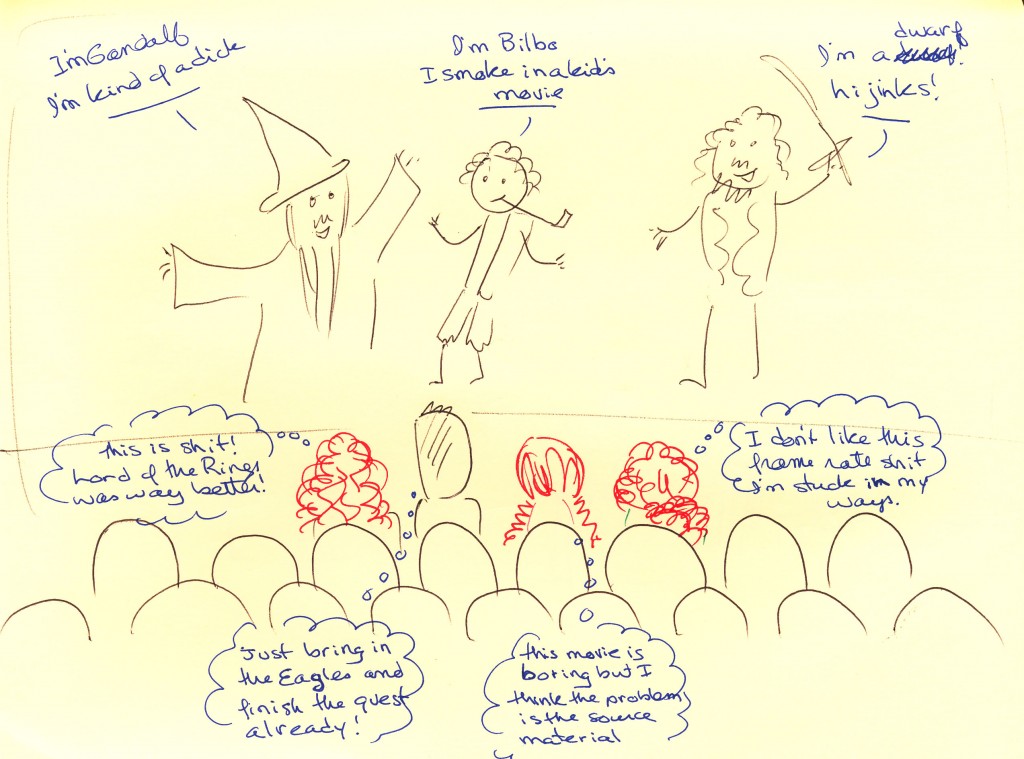 I'm Gandalf
I'm kind of a dick
I'm Bilbo
I smoke in a kid's
movie
dwarf
I'm a
hijinks!
this is shit!
Lord of the Rings
was way better!
I don't like this
frame rate shit
I'm stuck in my
ways.
Just bring in
the Eagles and
finish the quest
already!
this movie is
boring but I
think the problem
is the source
material